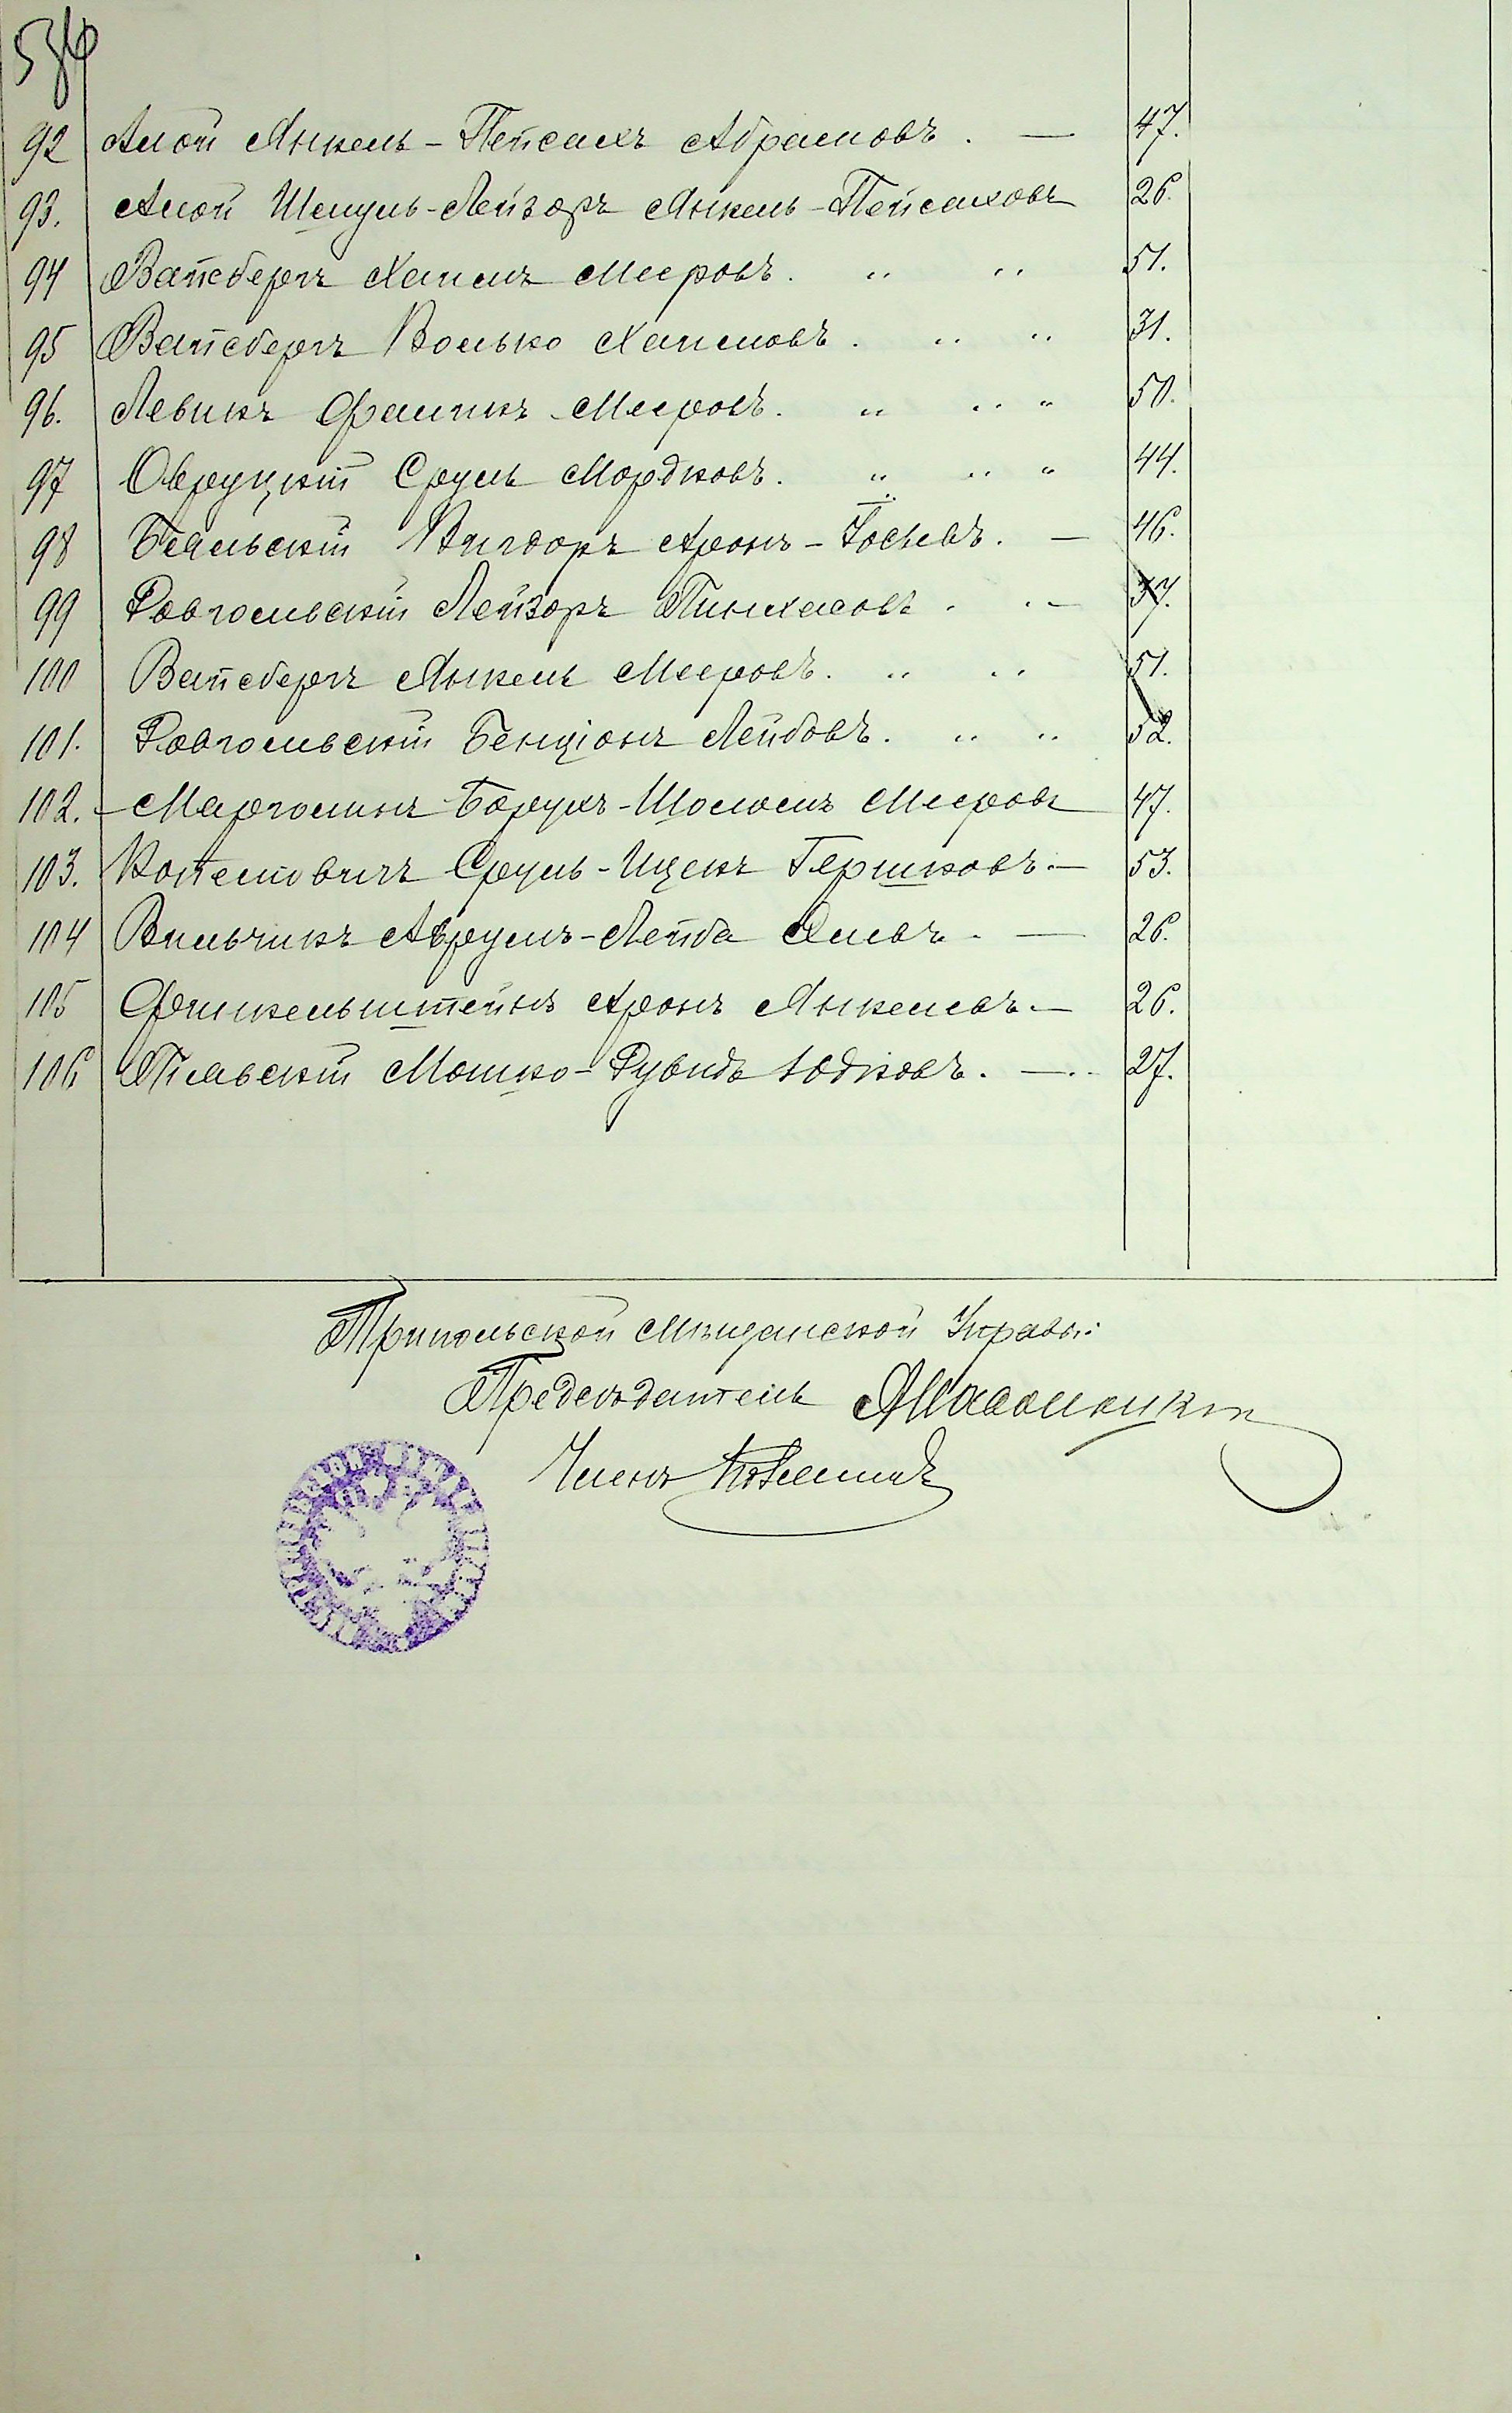 536
92 Алой Янкель-Пейсахъ Абрамовъ. — 47.
93. Алой Шмуль-Лейзоръ Янкель-Пейсаховъ 26.
94 Вайсбергъ Хаимъ Мееровъ. 51.
95 Вайсбергъ Волько Хаимовъ. 31.
96. Левикъ Фаликъ Мееровъ. 50.
97 Овруцкій Сруль Мордковъ. 44.
98 Бѣльскій Вигдоръ Аронъ-Іосьевъ. — 46.
99 Ровгольскій Лейзоръ Пинхасовъ. 37.
100 Вайсбергъ Янкель Мееровъ. 51.
101. Ровгольскій Бенціонъ Лейбовъ. 52.
102. Марголинъ Борухъ-Шоломъ Мееровъ 47.
103. Копеловичъ Сруль-Ицекъ Гершковъ. — 53.
104 Вильчикъ Аврумъ-Лейба 26.
105 Финкельштейнъ Аронъ Янкелевъ. — 26.
106 Мошко-Рувидъ Юдковъ. — 27.
Трипольской Мѣщанской Управы:
Предсѣдатель
Членъ